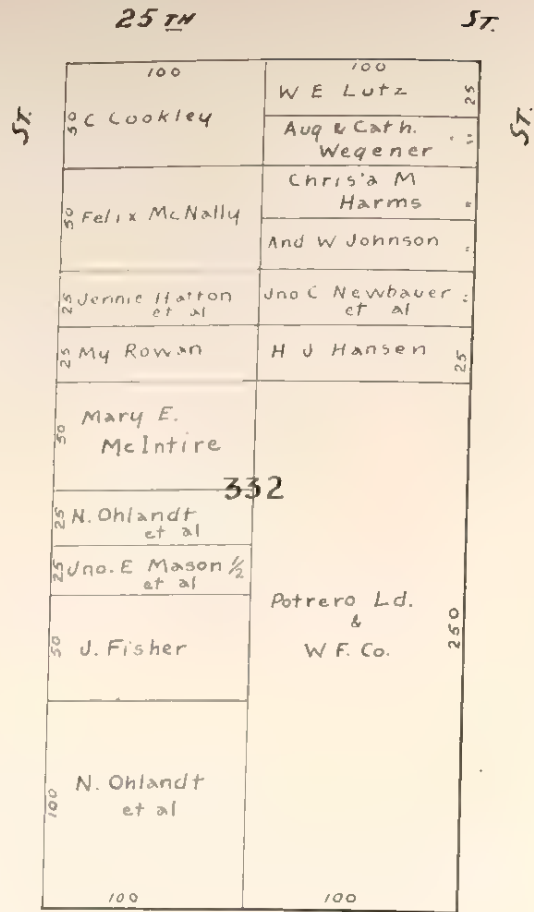 25 TH ST.
ST.
ST.
100
50 C Cookley
50 Felix McNally
25 Jennie Hatton
et al
25 My Rowan
50 Mary E.
McIntire
25 N. Ohlandt
et al
25 Jno. E Mason 1/2
et al
50 J. Fisher
100 N. Ohlandt
et al
100
332
100
W E Lutz 25
Aug & Cath. "
Wegener
Chris'a M
Harms "
And W Johnson "
Jno C Newbauer "
et al
H J Hansen 25
Potrero Ld.
&
W F. Co.
250
100